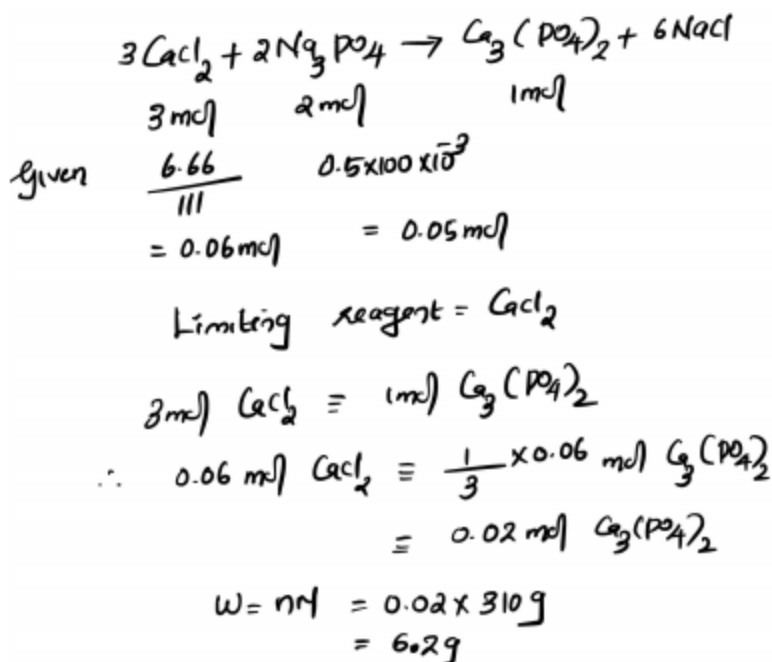 3CaCl₂ + 2Na₃PO₄ → Ca₃(PO₄)₂ + 6NaCl
3mol 2mol 1mol
Given 6.66/111 0.5×100×10⁻³
= 0.06mol = 0.05mol
Limiting reagent = CaCl₂
3mol CaCl₂ ≡ 1mol Ca₃(PO₄)₂
∴ 0.06 mol CaCl₂ ≡ 1/3 × 0.06 mol Ca₃(PO₄)₂
≡ 0.02 mol Ca₃(PO₄)₂
W = nM = 0.02 × 310g
= 6.2g